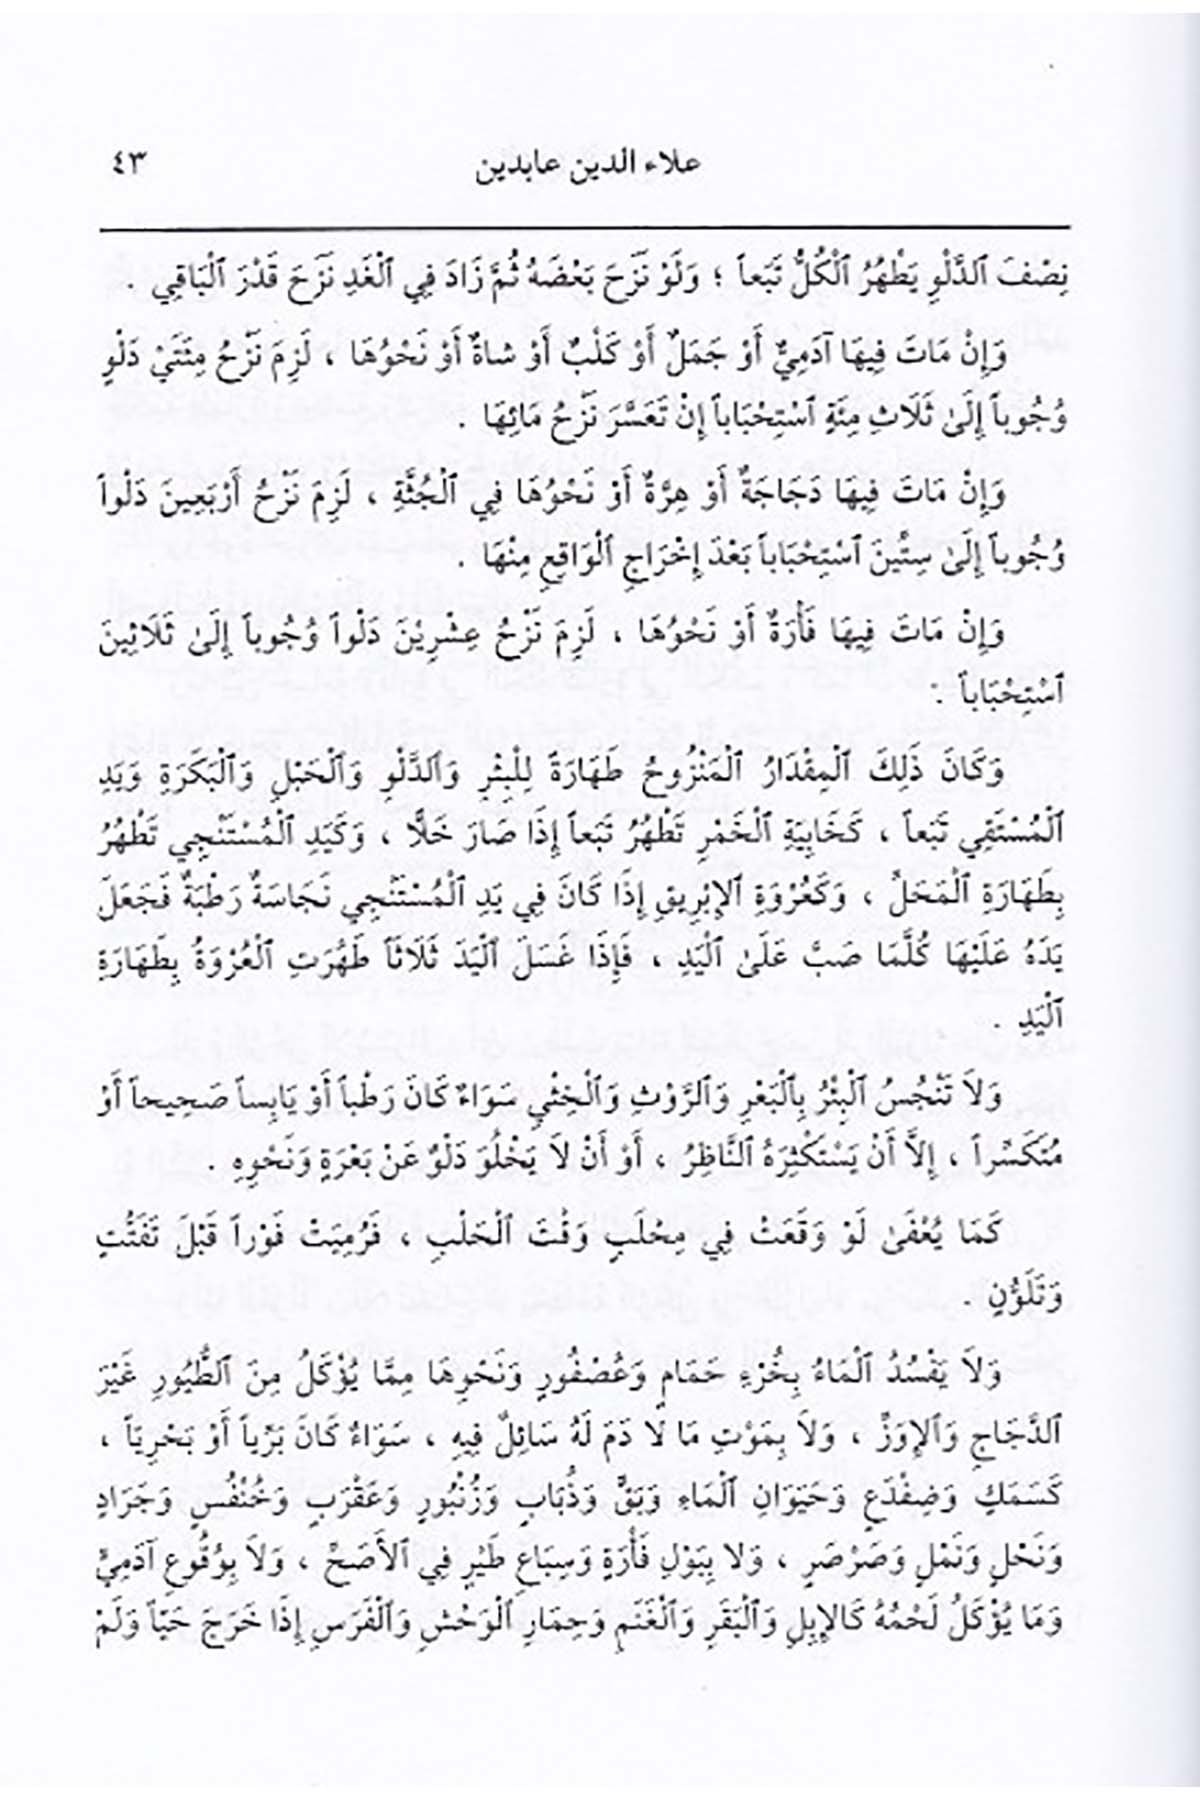 علاء الدين عابدين ٤٣
نِصْفَ ٱلدَّلْوِ يَطْهُرُ ٱلْكُلُّ تَبَعاً ؛ وَلَوْ نَزَحَ بَعْضَهُ ثُمَّ زَادَ فِي ٱلْغَدِ نَزَحَ قَدْرَ ٱلْبَاقِي .
وَإِنْ مَاتَ فِيهَا آدَمِيٌّ أَوْ جَمَلٌ أَوْ كَلْبٌ أَوْ شاةٌ أَوْ نَحْوُهَا ، لَزِمَ نَزْحُ مِئَتَيْ دَلْوٍ
وُجُوباً إِلَىٰ ثَلَاثِ مِئَةٍ ٱسْتِحْبَاباً إِنْ تَعَسَّرَ نَزْحُ مَائِهَا .
وَإِنْ مَاتَ فِيهَا دَجَاجَةٌ أَوْ هِرَّةٌ أَوْ نَحْوُهَا فِي ٱلْجُثَّةِ ، لَزِمَ نَزْحُ أَرْبَعِينَ دَلْواً
وُجُوباً إِلَىٰ سِتِّينَ ٱسْتِحْبَاباً بَعْدَ إِخْرَاجِ ٱلْوَاقِعِ مِنْهَا .
وَإِنْ مَاتَ فِيهَا فَأْرَةٌ أَوْ نَحْوُهَا ، لَزِمَ نَزْحُ عِشْرِيْنَ دَلْواً وُجُوباً إِلَىٰ ثَلَاثِيْنَ
ٱسْتِحْبَاباً .
وَكَانَ ذَلِكَ ٱلْمِقْدَارُ ٱلْمَنْزُوحُ طَهَارَةً لِلْبِئْرِ وَٱلدَّلْوِ وَٱلْحَبْلِ وَٱلْبَكَرَةِ وَيَدِ
ٱلْمُسْتَقِي تَبَعاً ، كَخَابِيَةِ ٱلْخَمْرِ تَطْهُرُ تَبَعاً إِذَا صَارَ خَلًّا ، وَكَيَدِ ٱلْمُسْتَنْجِي تَطْهُرُ
بِطَهَارَةِ ٱلْمَحَلِّ ، وَكَعُرْوَةِ ٱلإِبْرِيقِ إِذَا كَانَ فِي يَدِ ٱلْمُسْتَنْجِي نَجَاسَةٌ رَطْبَةٌ فَجَعَلَ
يَدَهُ عَلَيْهَا كُلَّمَا صَبَّ عَلَىٰ ٱلْيَدِ ، فَإِذَا غَسَلَ ٱلْيَدَ ثَلَاثاً طَهُرَتِ ٱلْعُرْوَةُ بِطَهَارَةِ
ٱلْيَدِ .
وَلاَ تَنْجُسُ ٱلْبِئْرُ بِٱلْبَعْرِ وَٱلرَّوْثِ وَٱلْخِثْيِ سَوَاءٌ كَانَ رَطْباً أَوْ يَابِساً صَحِيحاً أَوْ
مُتَكَسِّراً ، إِلاَّ أَنْ يَسْتَكْثِرَهُ ٱلنَّاظِرُ ، أَوْ أَنْ لاَ يَخْلُوَ دَلْوٌ عَنْ بَعْرَةٍ وَنَحْوِهِ .
كَمَا يُعْفَىٰ لَوْ وَقَعَتْ فِي مِحْلَبٍ وَقْتَ ٱلْحَلْبِ ، فَرُمِيَتْ فَوْراً قَبْلَ تَفَتُّتٍ
وَتَلَوُّنٍ .
وَلاَ يَفْسُدُ ٱلْمَاءُ بِخُرْءِ حَمَامٍ وَعُصْفُورٍ وَنَحْوِهَا مِمَّا يُؤْكَلُ مِنَ ٱلطُّيُورِ غَيْرَ
ٱلدَّجَاجِ وَٱلإِوَزِّ ، وَلاَ بِمَوْتِ مَا لاَ دَمَ لَهُ سَائِلٌ فِيهِ ، سَوَاءٌ كَانَ بَرِّياً أَوْ بَحْرِيّاً ،
كَسَمَكٍ وَضِفْدَعٍ وَحَيَوَانِ ٱلْمَاءِ وَبَقٍّ وَذُبَابٍ وَزُنْبُورٍ وَعَقْرَبٍ وَخُنْفُسٍ وَجَرَادٍ
وَنَحْلٍ وَنَمْلٍ وَصَرْصَرٍ ، وَلا بِبَوْلِ فَأْرَةٍ وَسِبَاعِ طَيْرٍ فِي ٱلأَصَحِّ ، وَلاَ بِوُقُوعِ آدَمِيٍّ
وَمَا يُؤْكَلُ لَحْمُهُ كَالإِبِلِ وَٱلْبَقَرِ وَٱلْغَنَمِ وَحِمَارِ ٱلْوَحْشِ وَٱلْفَرَسِ إِذَا خَرَجَ حَيّاً وَلَمْ